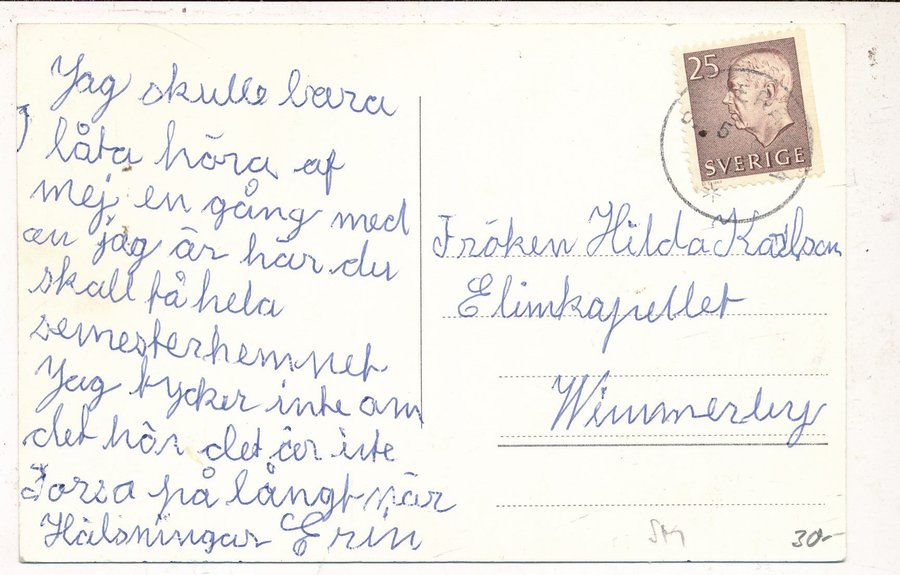 Jag skulle bara
låta höra af
mej en gång med
an jag är här du
skall få hela
semesterhemmet
Jag tycker inte om
det här det är inte
Forsa på långt när
Hälsningar Erin
25
SVERIGE
Fröken Hilda Karlson
Elimkapellet
Wimmerby
30-